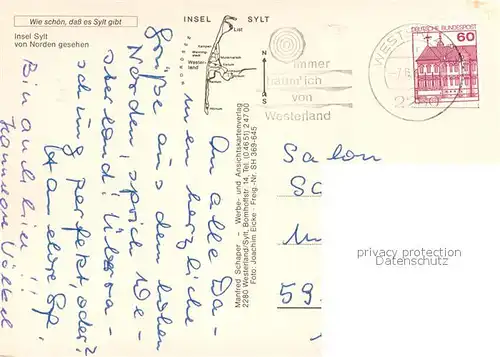 Wie schön, daß es Sylt gibt
Insel Sylt
von Norden gesehen
INSEL SYLT
List
Kampen
Westerland
Hörnum
N
S
immer
traumlich
von
Westerland
WEST
DEUTSCHE BUNDESPOST
60
Manfred Schaper – Werbe- und Ansichtskartenverlag
2280 Westerland/Sylt, Bomhoffstr. 14, Tel. (0 46 51) 2 47 00
Foto: Joachim Eicke - Freig.-Nr. SH 369-645
An alle Da-
men herzliche
Grüße aus dem hohen
Norden, sprich We-
sterland! Überra-
schung perfekt, oder?
Bin auch hier!!
Hannelore
Salon
59.
privacy protection
Datenschutz